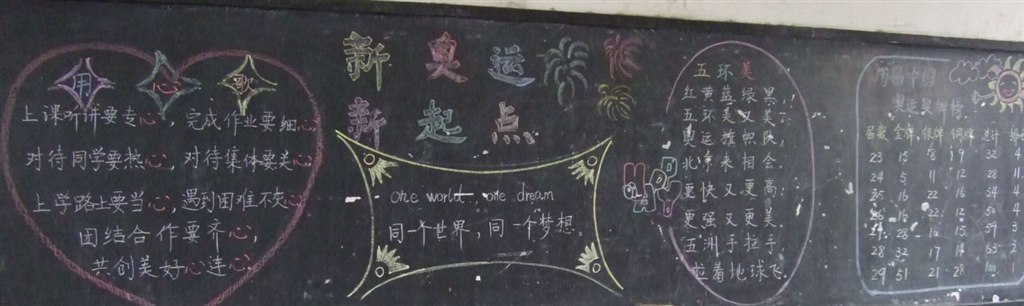 用心歌
上课听讲要专心,完成作业要细心,
对待同学要热心,对待集体要关心,
上学路上要当心,遇到困难不灰心,
团结合作要齐心,
共创美好心连心。
新奥运
新起点
one world, one dream
同一个世界,同一个梦想。
五环美
红黄蓝绿黑,
五环美又美,
奥运旗帜
北京来相会。
更快又更高,
更强又更美,
五洲手拉手,
拉着地球飞。
历届中国
奥运奖牌榜
届数 金牌 银牌 铜牌 总计
23 15 8 9 32 4
24 5 11 12 28 11
25 16 22 16 54 4
26 16 22 12 50 4
27 28 16 15 59 3
28 32 17 14 63 2
29 51 21 28 100 1